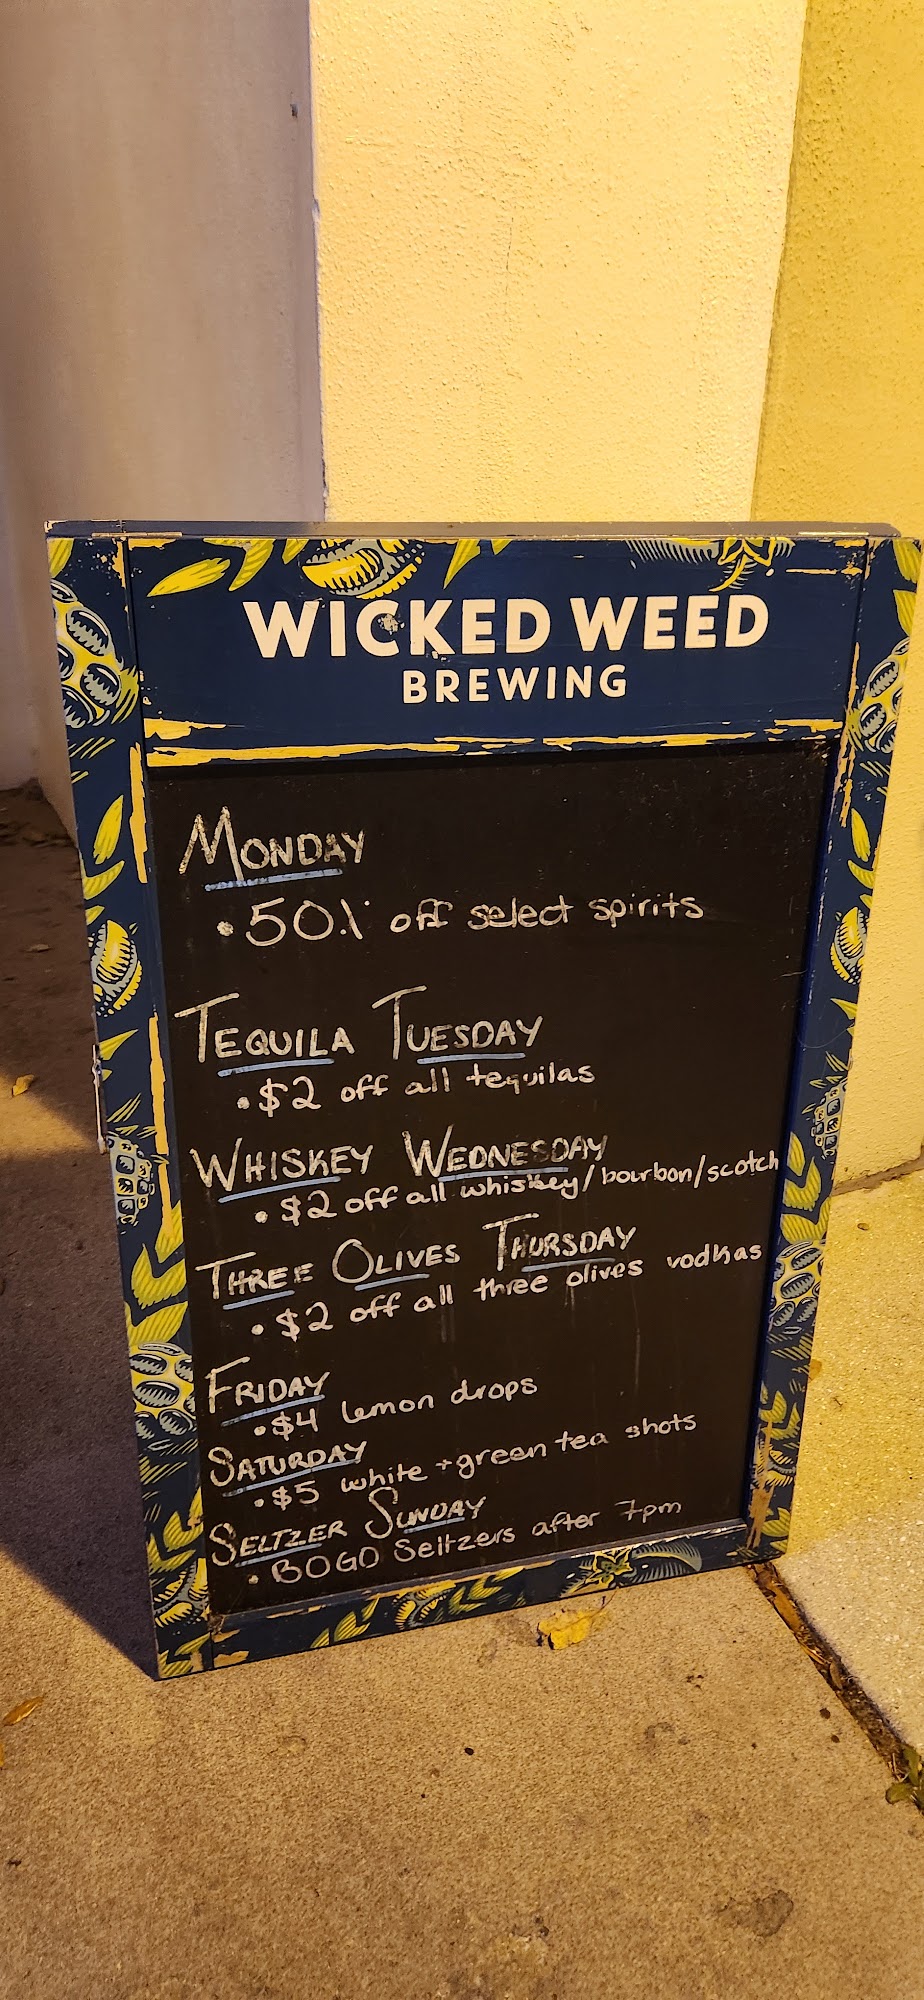 WICKED WEED
BREWING
MONDAY
• 50% off select spirits
TEQUILA TUESDAY
• $2 off all tequilas
WHISKEY WEDNESDAY
• $2 off all whiskey/bourbon/scotch
THREE OLIVES THURSDAY
• $2 off all three olives vodkas
FRIDAY
• $4 lemon drops
SATURDAY
• $5 white + green tea shots
SELTZER SUNDAY
• BOGO Seltzers after 7pm